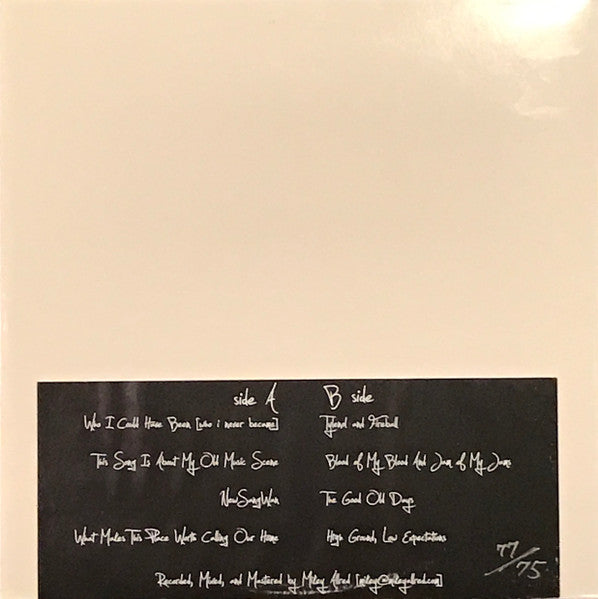 side A
Who I Could Have Been [who i never became]
This Song Is About My Old Music Scene
NewSongWhen
What Makes This Place Worth Calling Our Home
B side
Tylenol and Fireball
Blood of My Blood And Jam of My Jams
The Good Old Days
High Ground, Low Expectations
77/75
Recorded, Mixed, and Mastered by Miley Allred [miley@mileyallred.com]